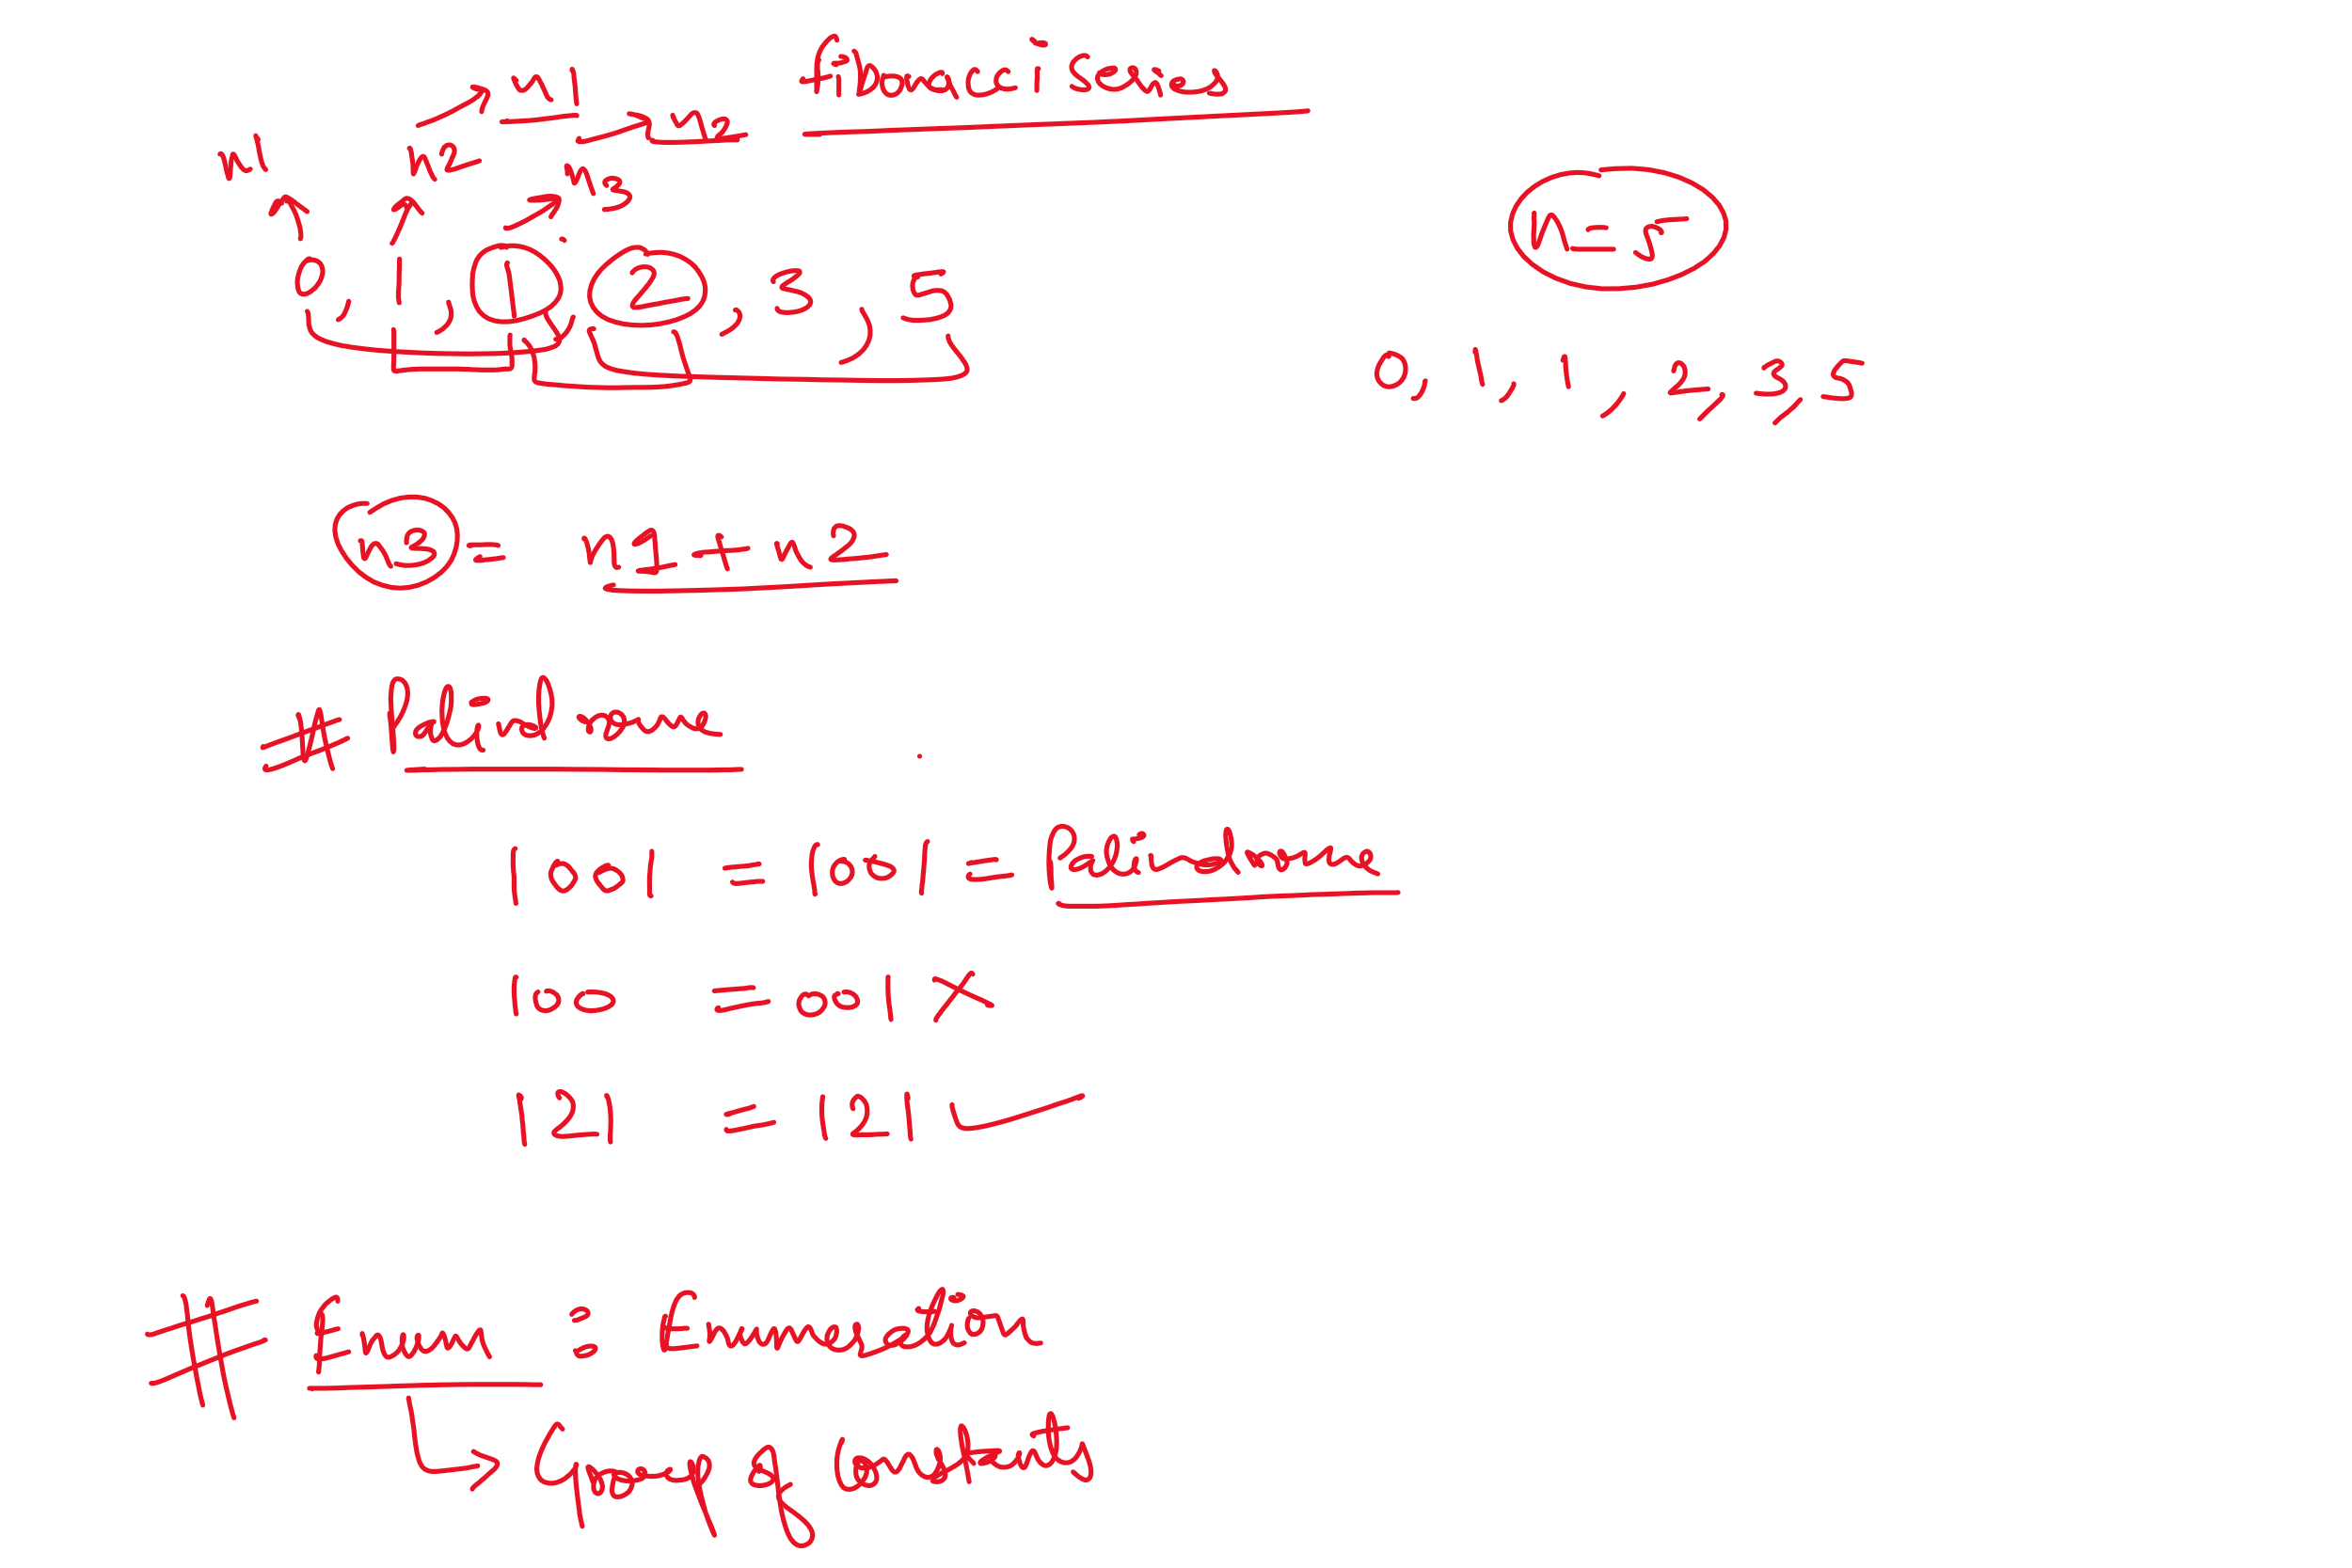 fibonacci series
n1 n2
n1 n2 n3
N = 5
0, 1, 1, 2, 3, 5
0, 1, 1, 2, 3, 5
n3 = n1 + n2
# Palindrome
1001 = 1001 = Palindrome
100 = 001 X
121 = 121 ✓
# Enum = Enumeration
Group of constants